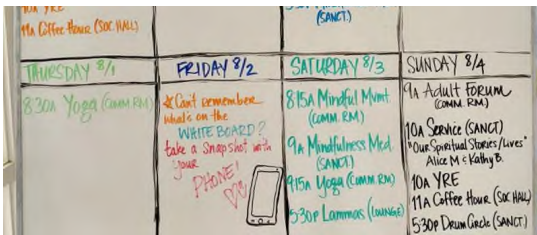 10A YRE
11A Coffee Hour (SOC. HALL)
(SANCT.)
THURSDAY 8/1
8:30A Yoga (COMM. RM)
FRIDAY 8/2
*Can't remember
what's on the
WHITE BOARD?
take a Snapshot with
your
PHONE!
SATURDAY 8/3
8:15A Mindful Mvmt
(COMM. RM)
9A Mindfulness Med.
(SANCT)
9:15A Yoga (COMM. RM)
5:30P Lammas (LOUNGE)
SUNDAY 8/4
9A Adult FORUM
(COMM. RM)
10A Service (SANCT)
"OUR Spiritual Stories/Lives"
Alice M & Kathy B.
10A YRE
11A Coffee Hour (SOC HALL)
5:30P Drum Circle (SANCT.)